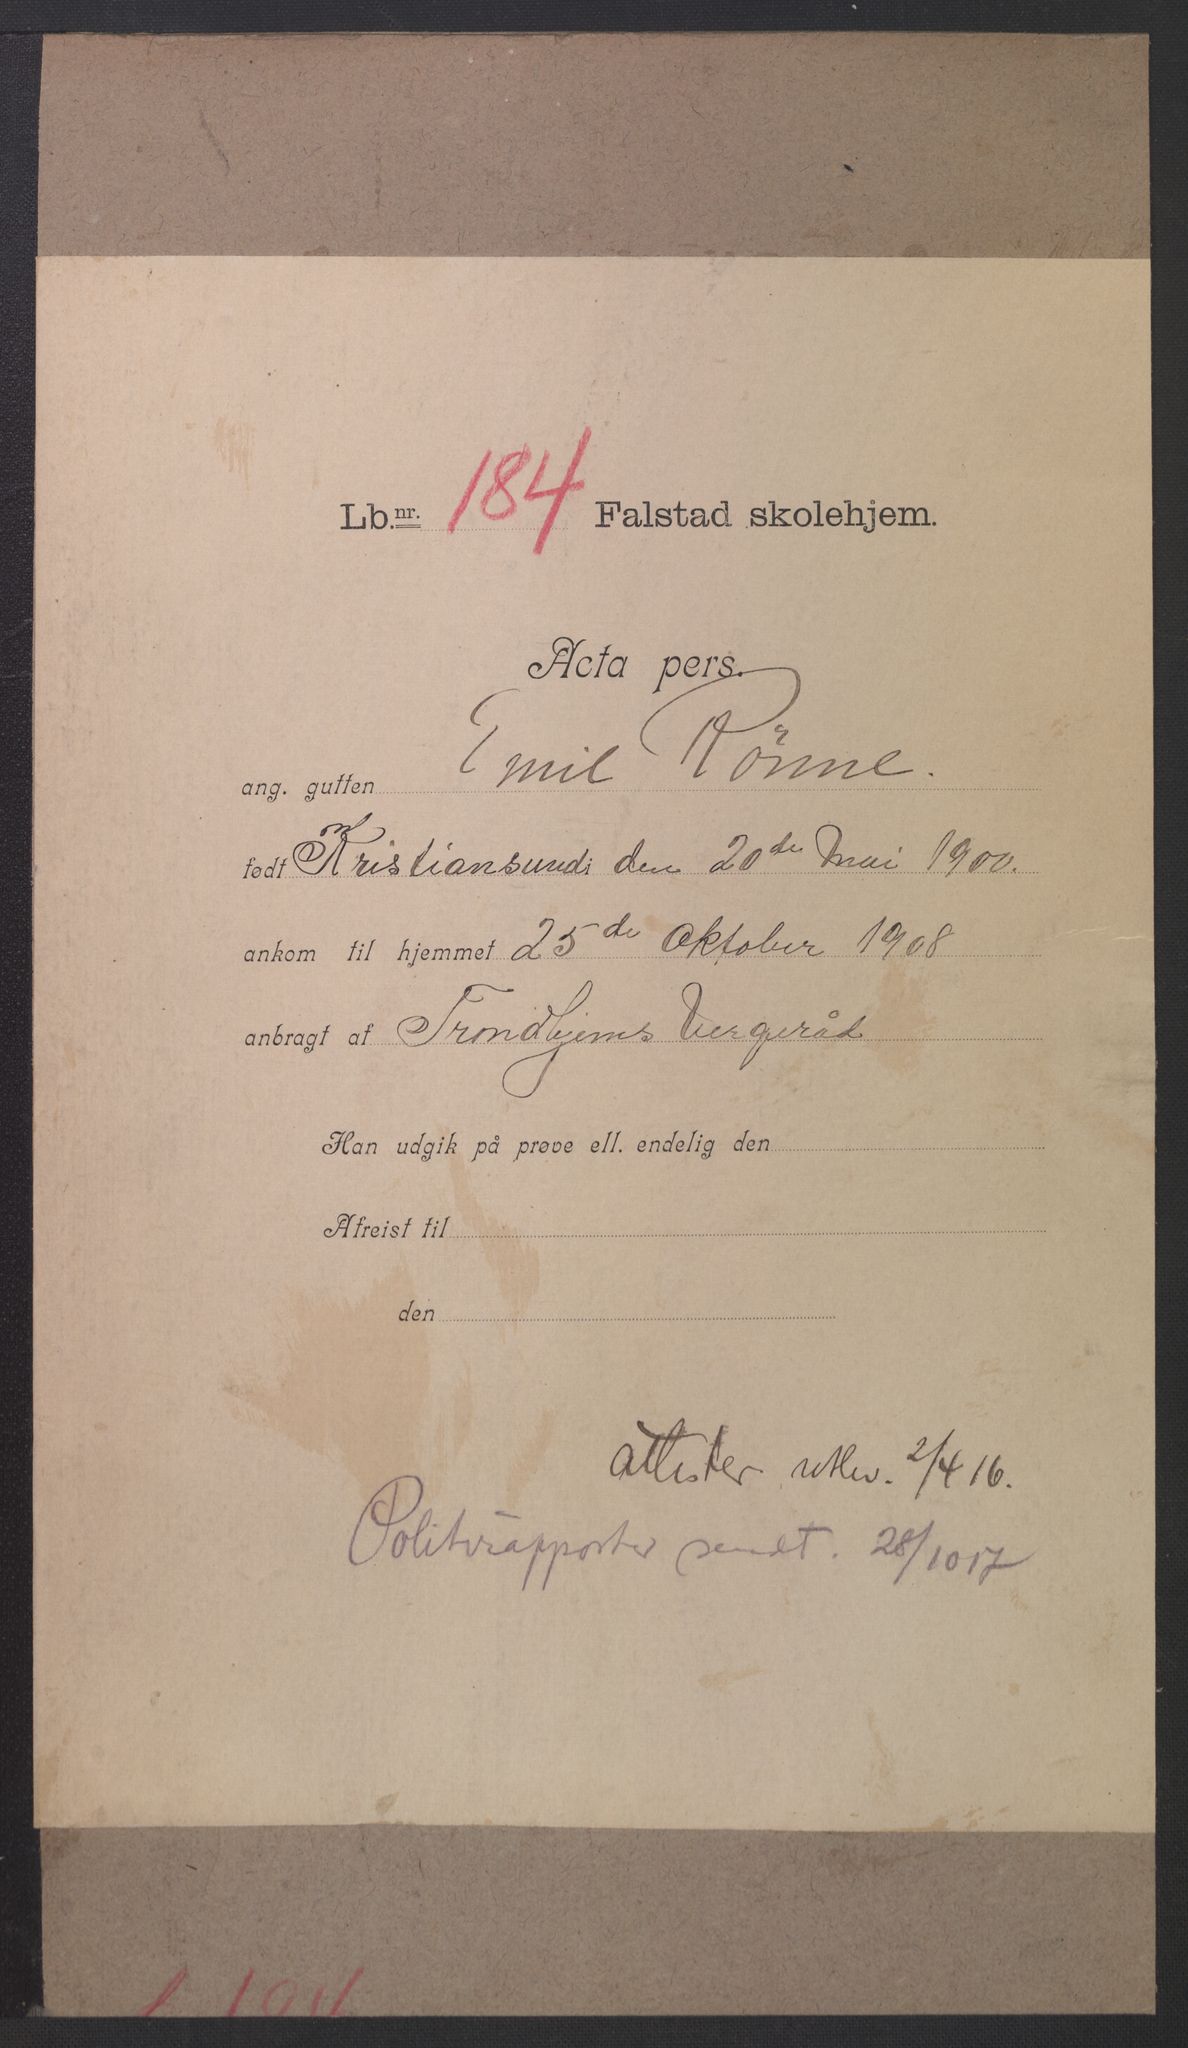 Lb.nr. 184 Falstad skolehjem.
Acta pers.
ang. gutten Emil Rönne.
født Kristiansund den 20de Mai 1900.
ankom til hjemmet 25de Oktober 1908
anbragt af Trondhjems Vergeråd
Han udgik på prøve ell. endelig den
Afreist til
den
attester utlev. 2/4 16.
Politirapporter sendt. 28/10 17